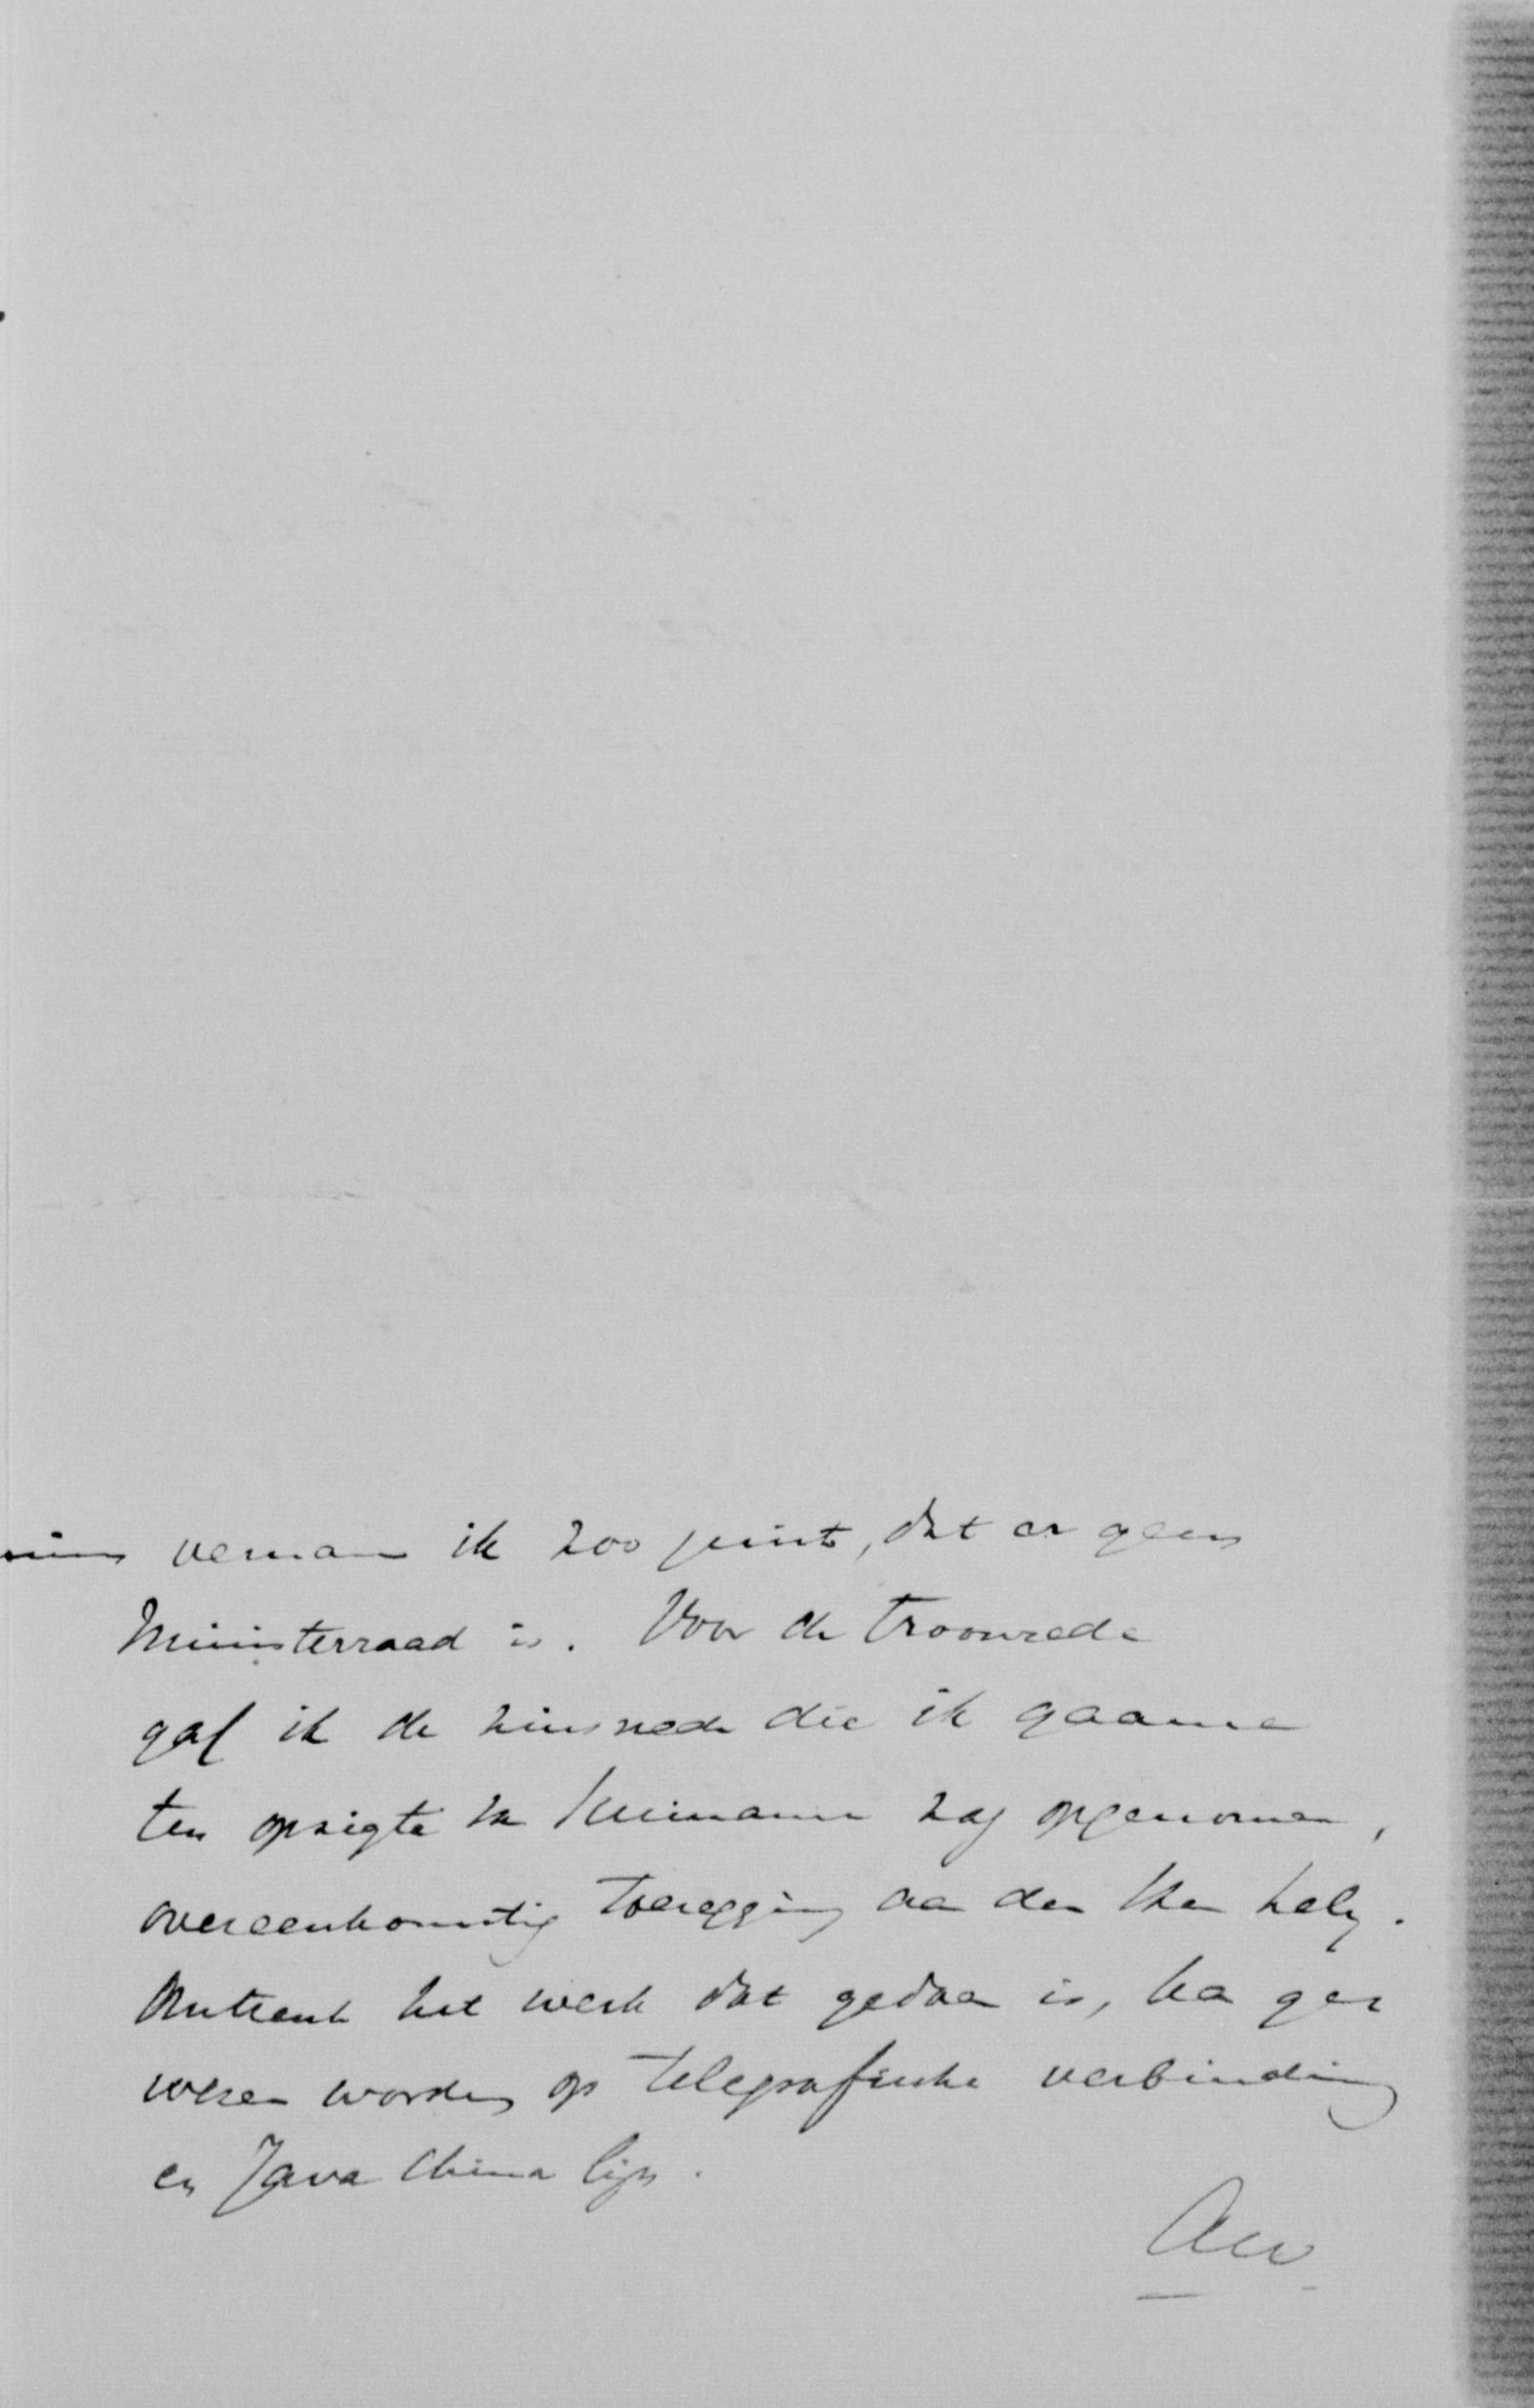 vernam ik zoo juist, dat er geen
Ministerraad is. Voor de troonrede
gaf ik de zinsnede die ik gaarne
ten opzigte zag opgenomen,
overeenkomstig toezegging aan den
Omtrent het werk dat gedaan is, kan ge
wezen worden op telegrafische verbinding
en Java China lijn.